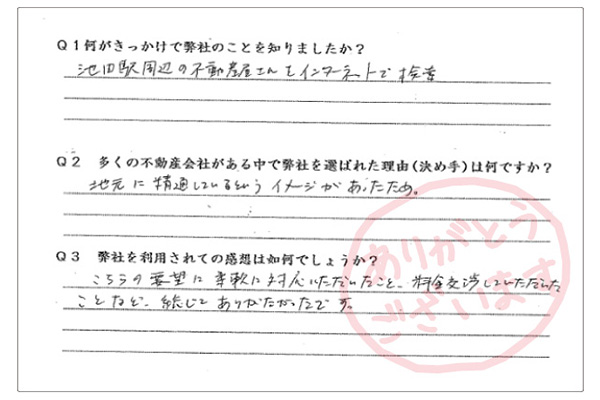 Q1何がきっかけで弊社のことを知りましたか？
池田駅周辺の不動産屋さんをインターネットで検索
Q2 多くの不動産会社がある中で弊社を選ばれた理由（決め手）は何ですか？
地元に精通しているというイメージがあったため。
Q3 弊社を利用されての感想は如何でしょうか？
こちらの要望に柔軟に対応いただいたこと、料金交渉していただいた
ことなど、総じてありがたかったです。
ありがとう
ございます